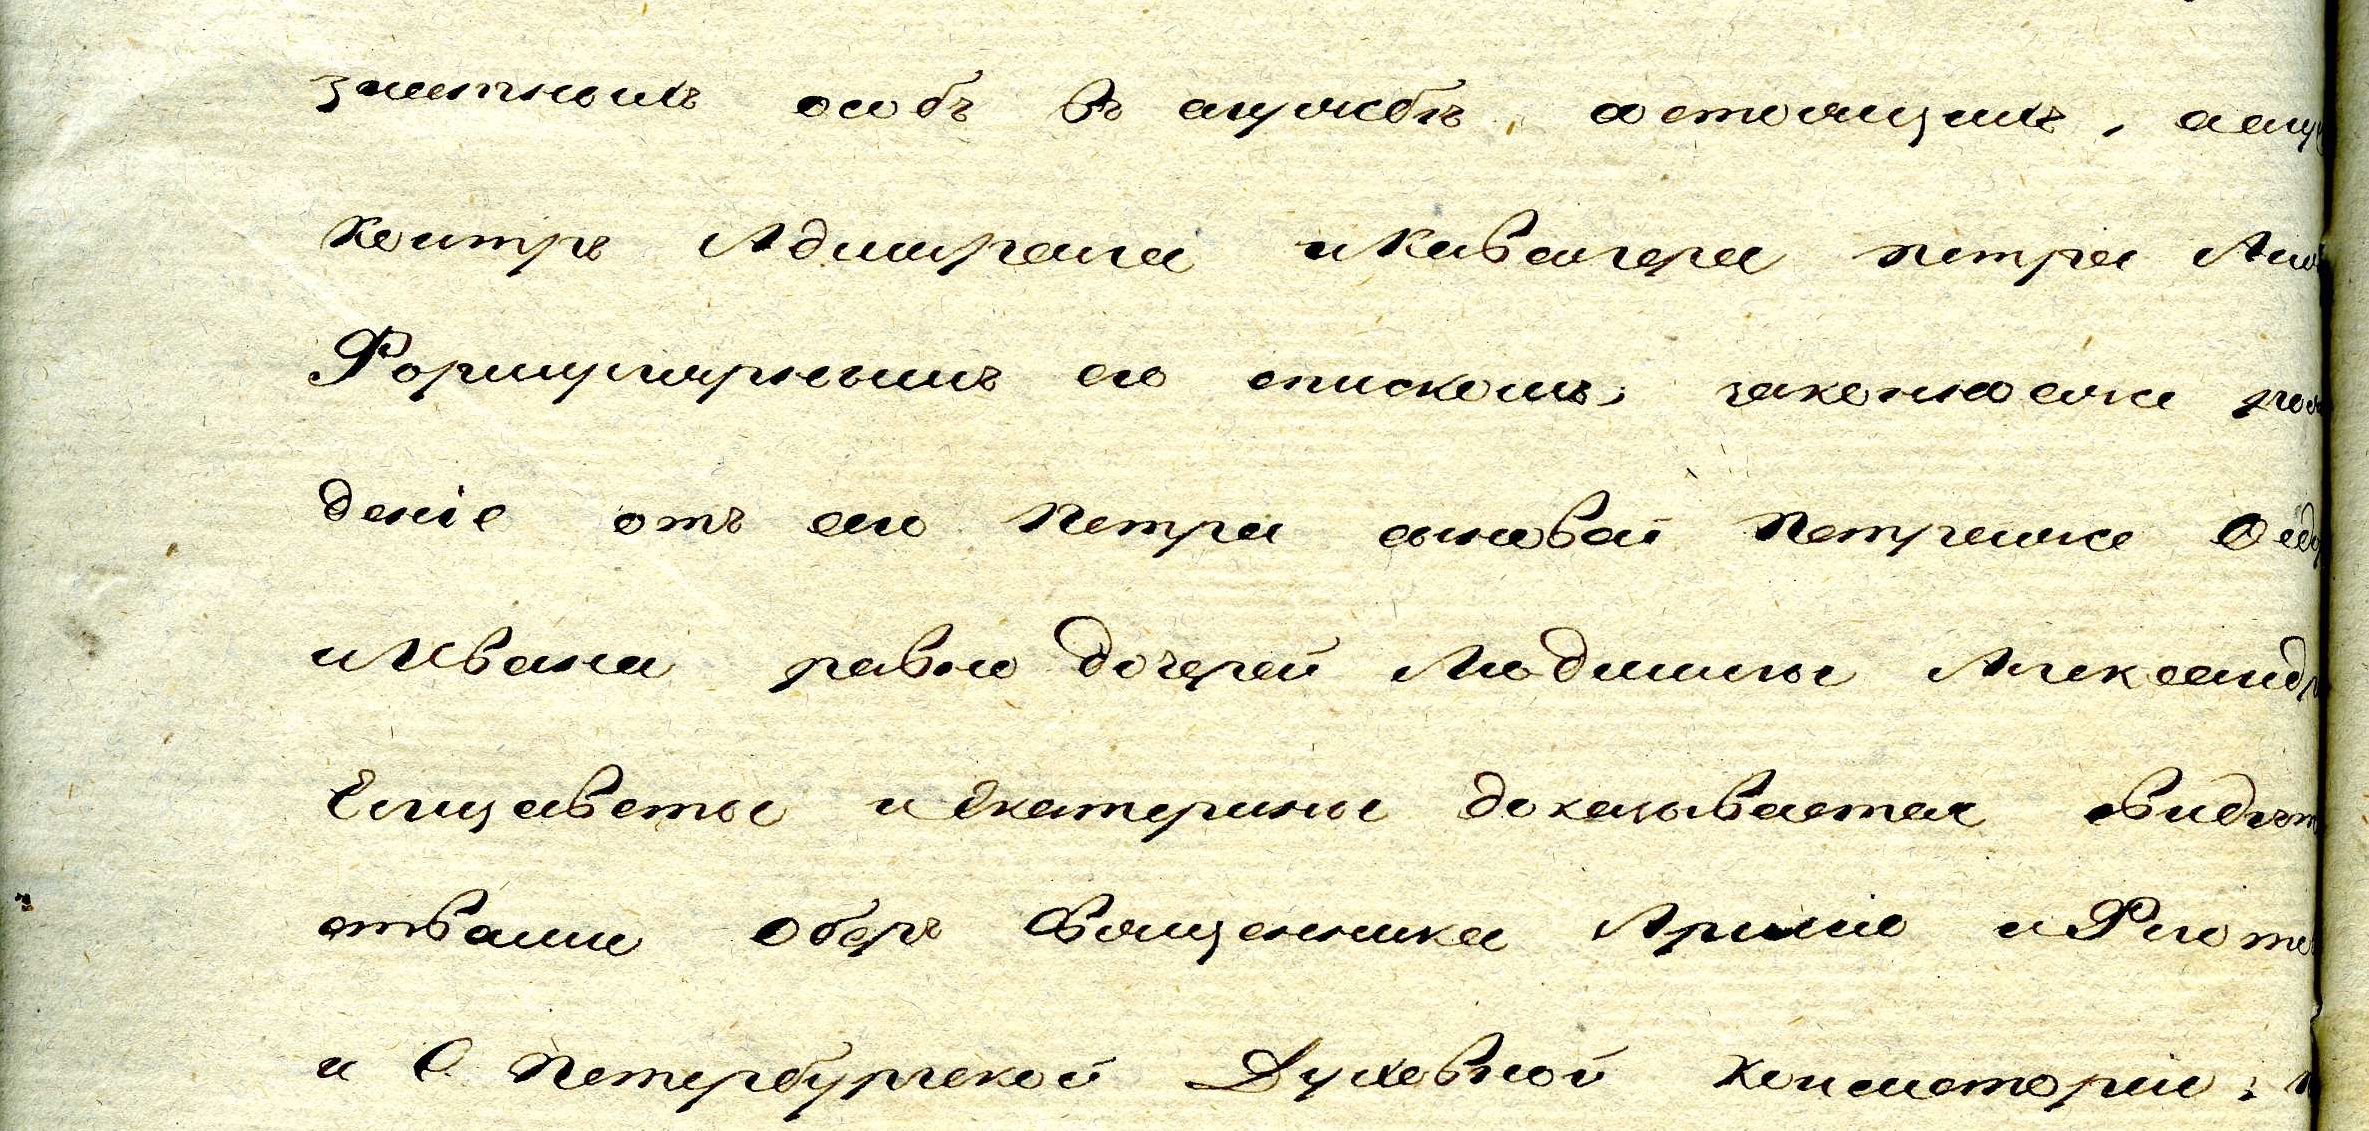 знатныхъ особъ въ службѣ, состоящихъ, а слу
Контръ Адмирала и Кавалера Петра
Формулярнымъ его спискомъ; законное же рож
деніе отъ его Петра сыновей Петра же
и Ивана равно дочерей Людмилы Александр
Елизаветы и Екатерины доказывается свидѣт
ствами Оберъ Священника Арміи и Флота
и С. Петербургской Духовной Консисторіи;